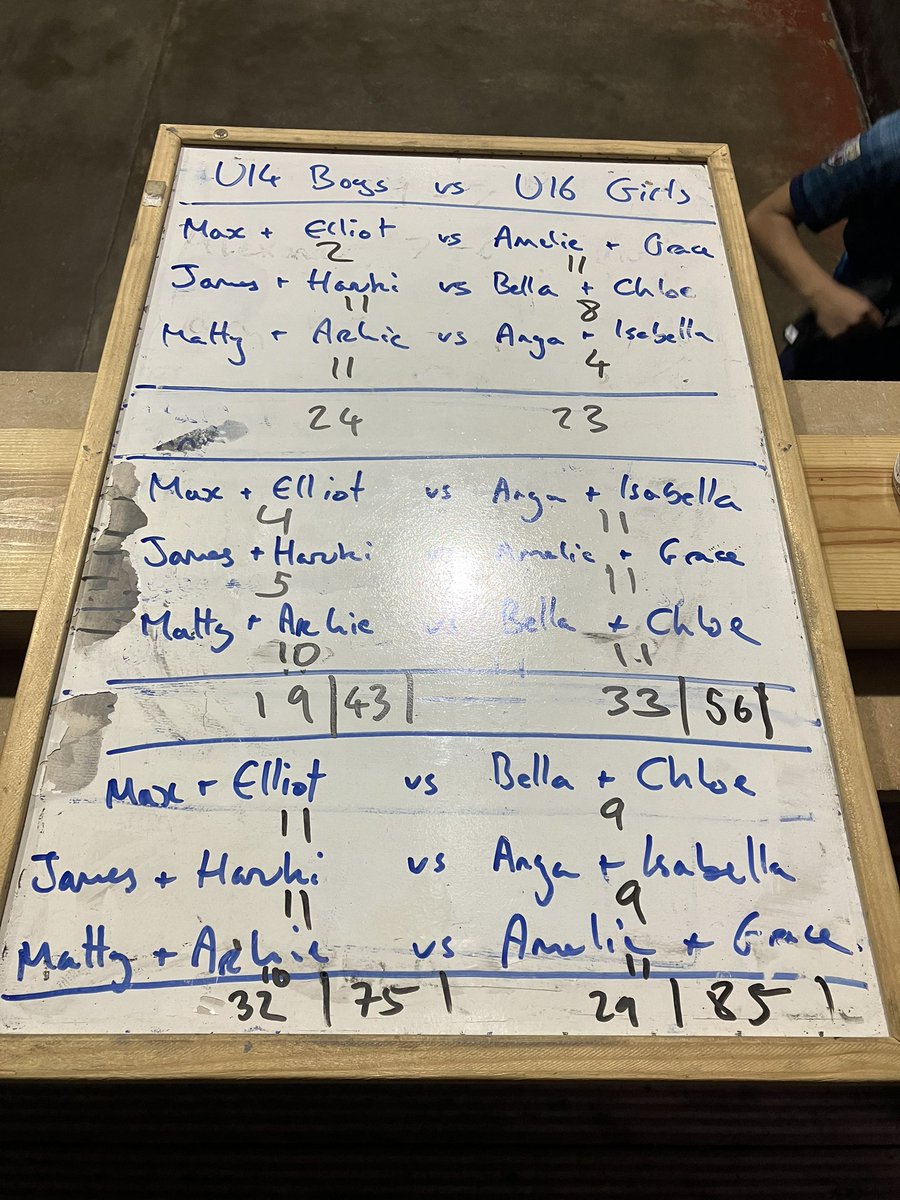 U14 Boys vs U16 Girls
Max + Elliot vs Amelie + Grace
2 11
James + Haruki vs Bella + Chloe
11 8
Matty + Archie vs Anya + Isabella
11 4
24 23
Max + Elliot vs Anya + Isabella
4 11
James + Haruki vs Amelie + Grace
5 11
Matty + Archie vs Bella + Chloe
10 11
19 | 43 | 33 | 56 |
Max + Elliot vs Bella + Chloe
11 9
James + Haruki vs Anya + Isabella
11 9
Matty + Archie vs Amelie + Grace.
10 11
32 | 75 | 29 | 85 |